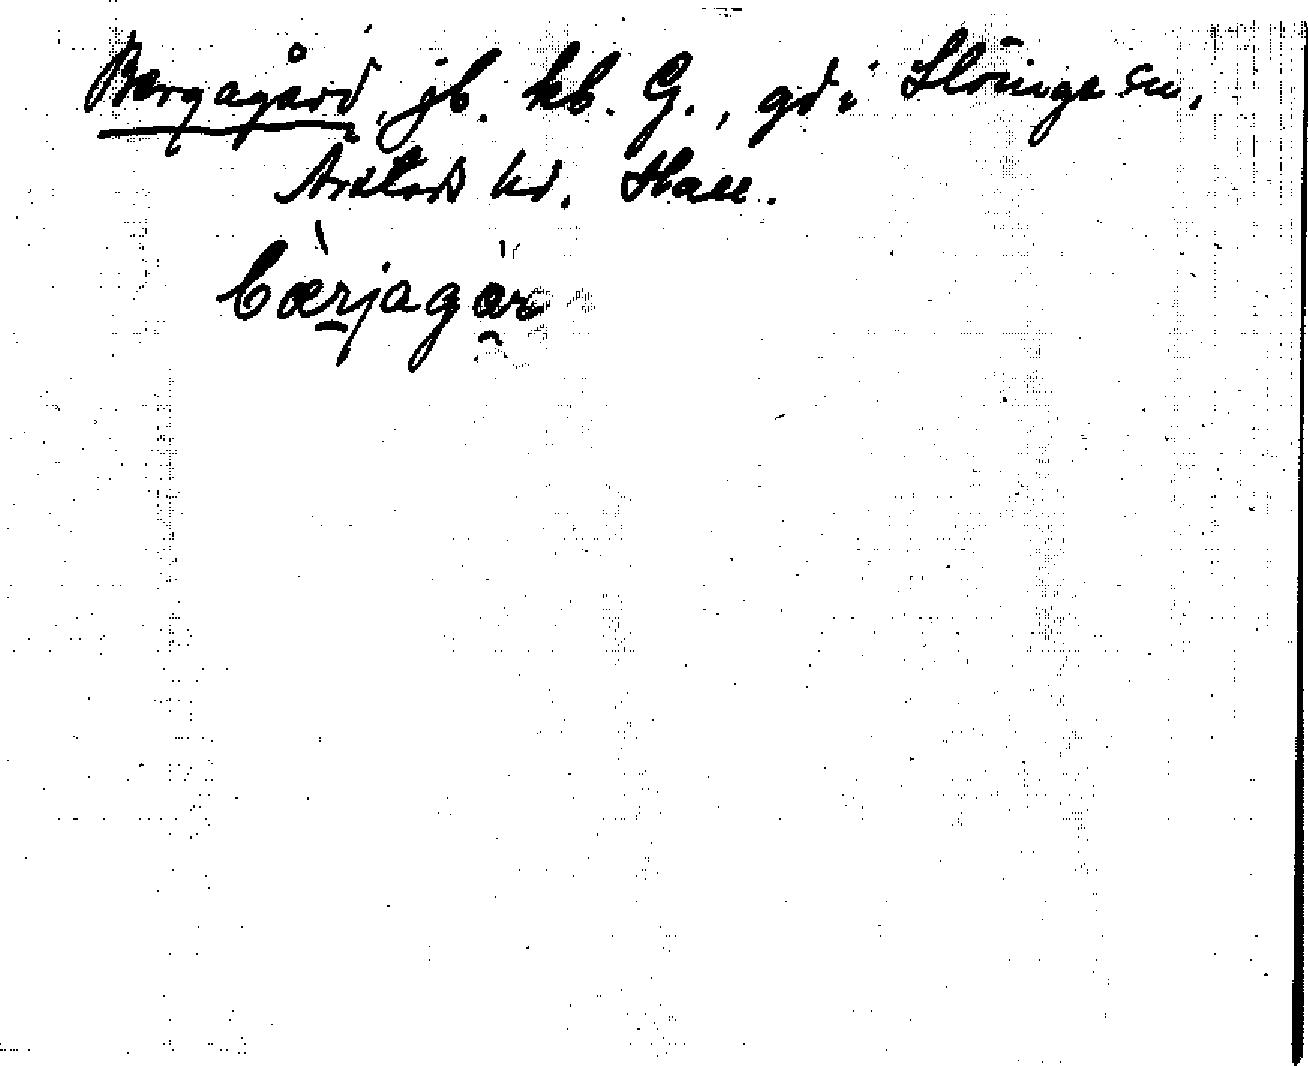 Bergagård, jb. kb. G., gd i Slöinge sn,
Årstads hd. Hall.
bærjagår